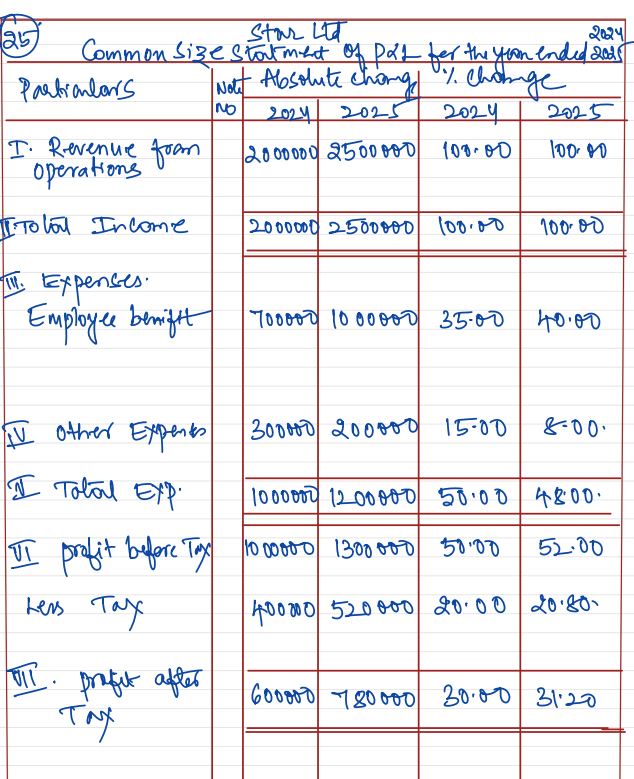 25
Star Ltd
Common Size Statment of P&L for the year ended 2024 2025
Particulars Note No Absolute change % Change
2024 2025 2024 2025
I. Revenue from operations 2000000 2500000 100.00 100.00
II. Total Income 2000000 2500000 100.00 100.00
III. Expenses.
Employee benifit 700000 1000000 35.00 40.00
IV Other Expenses 300000 200000 15.00 8.00.
V Total Exp. 1000000 1200000 50.00 48.00.
VI profit before Tax 1000000 1300000 50.00 52.00
Less Tax 400000 520000 20.00 20.80.
VII. profit after Tax 600000 780000 30.00 31.20